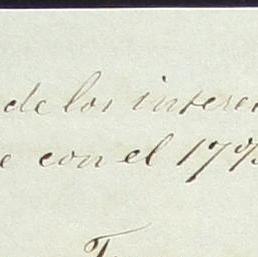 de los intere
e con el 17%